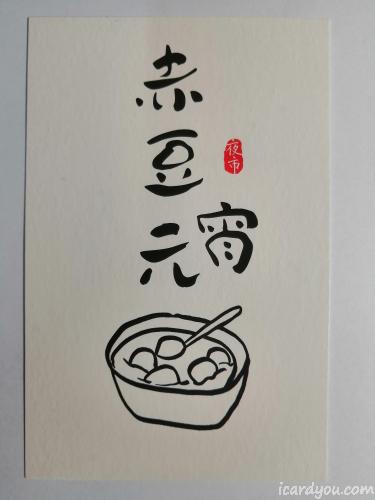 赤豆元宵
夜市
icardyou.com